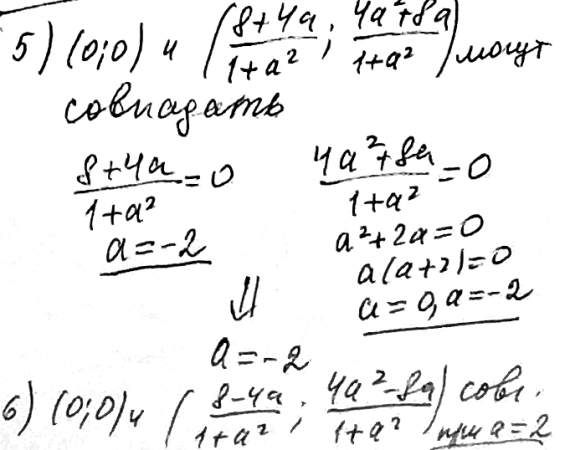 5) (0;0) и ( (8+4a)/(1+a²) ; (4a²+8a)/(1+a²) ) могут
совпадать
(8+4a)/(1+a²) = 0
a = -2
(4a²+8a)/(1+a²) = 0
a²+2a=0
a(a+2)=0
a=0, a=-2
⇓
a=-2
6) (0;0) и ( (8-4a)/(1+a²) ; (4a²-8a)/(1+a²) ) совп.
при a=2